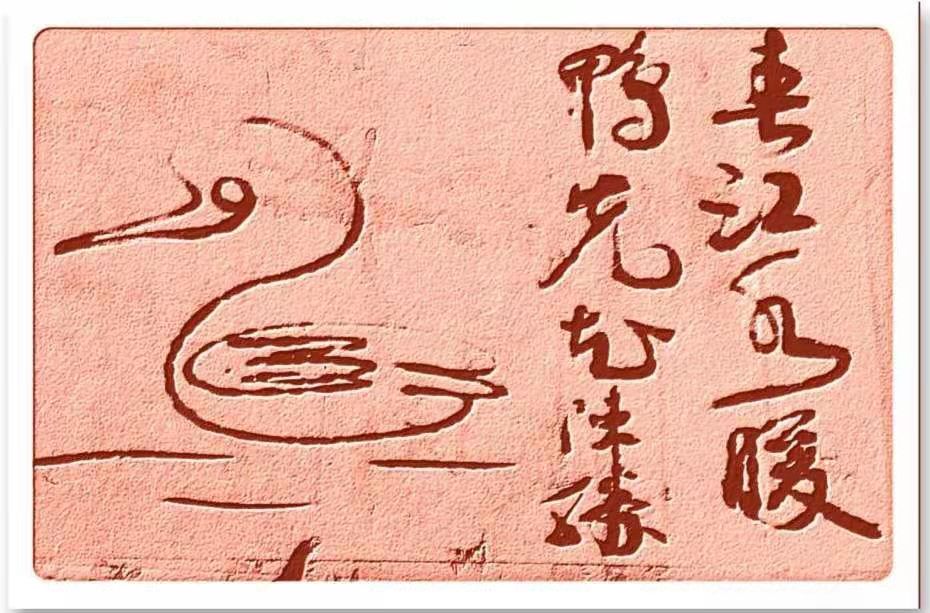 春江水暖
鸭先知陈